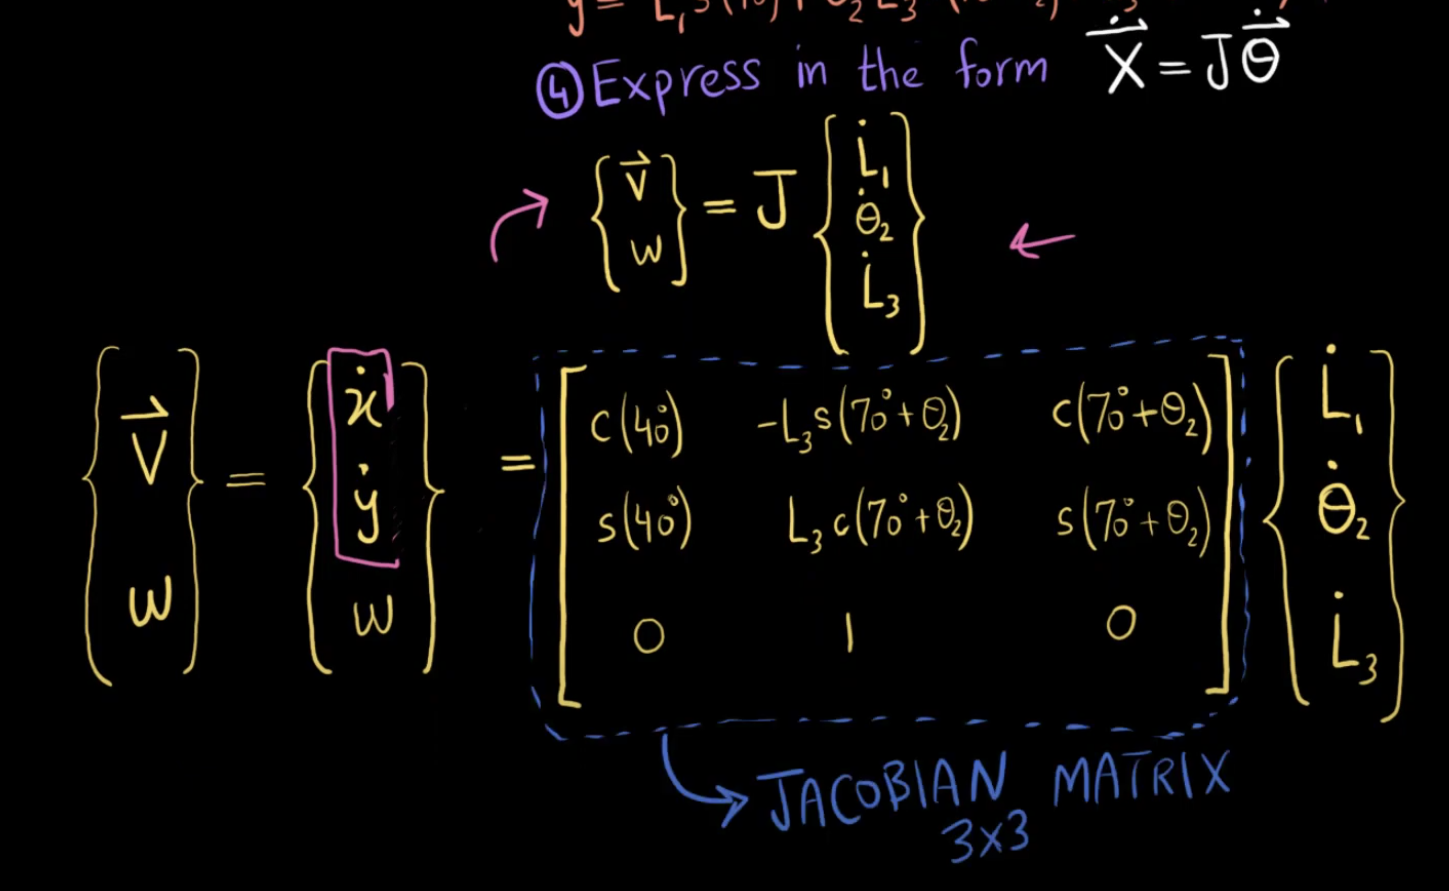 ④ Express in the form Ẋ⃗ = J θ̇⃗
{ v⃗ w } = J { L̇₁ θ̇₂ L̇₃ }
{ V⃗ w } = { ẋ ẏ w } = [ c(40°) -L₃s(70°+θ₂) c(70°+θ₂)
s(40°) L₃c(70°+θ₂) s(70°+θ₂)
0 1 0 ] { L̇₁ θ̇₂ L̇₃ }
JACOBIAN MATRIX
3x3